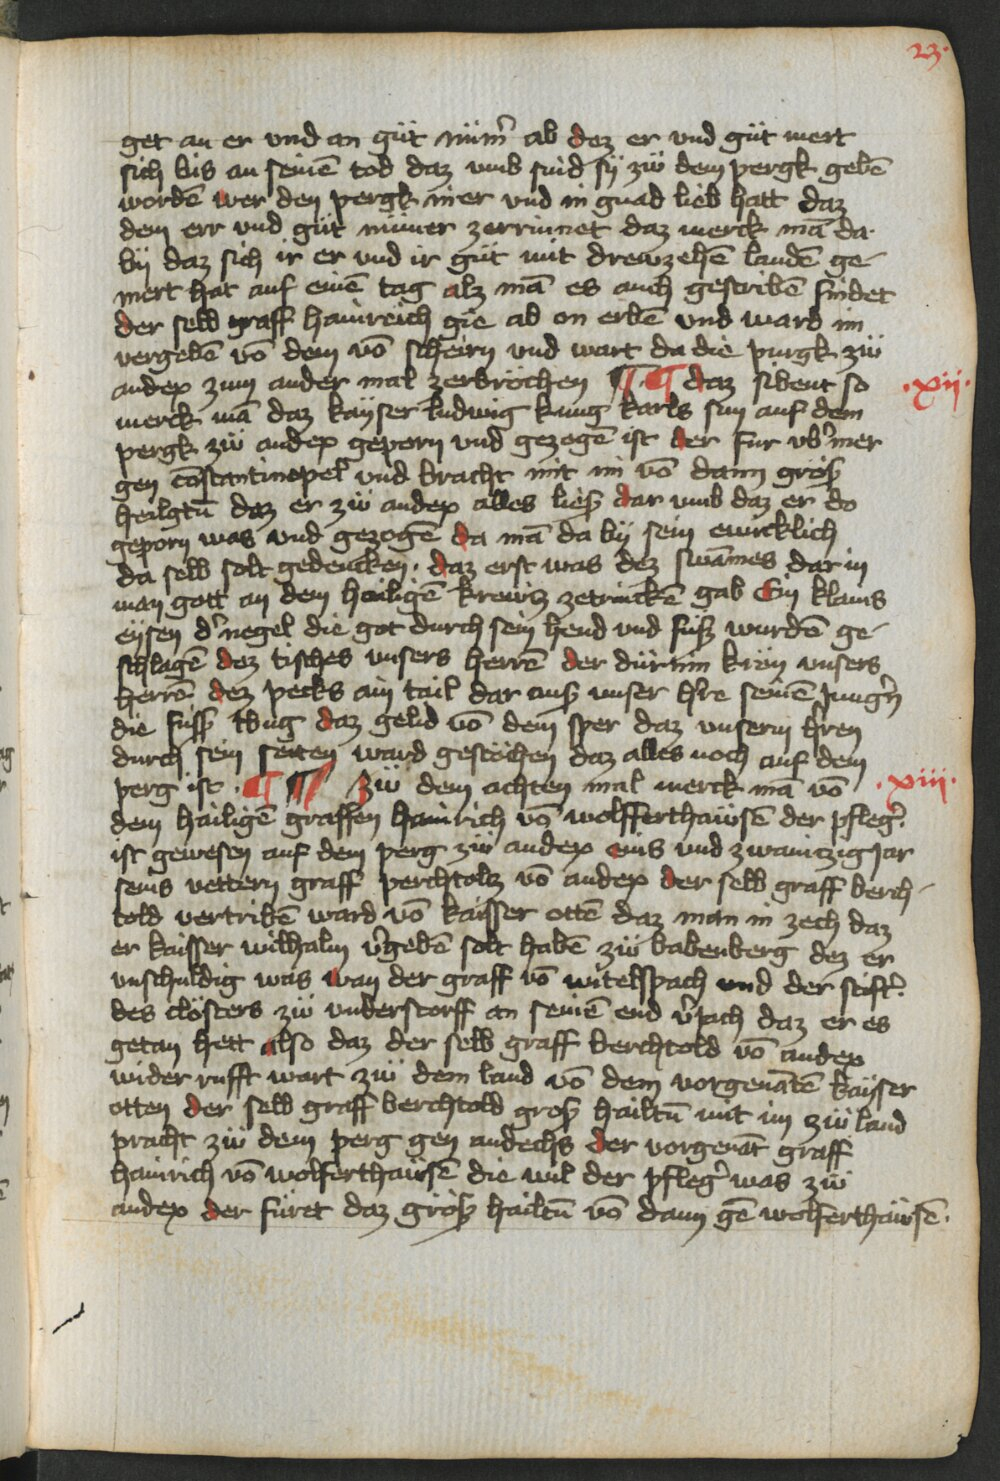 23.
get an er vnd an güt nüm̄ ab dez er vnd güt mert
sich bis an seinē tod daz vmb sind sÿ zü dem pergk gebē
wordē wer den pergk in er vnd in gnad lieb hatt daz
dem err vnd güt nimer zerrinnet daz merck mā da
bÿ daz sich ir er vnd ir güt mit drewzehē landē ge-
mert hat auf einē tag alz mā es auch gestribē findet
der selb graff hainreich gie ab on erbē vnd ward im
vergebē vō dem vō scheirn vnd wart da die purgk zü
andex zum ander mal zerbröchen ¶ ¶ daz sibent so
.xii.
merck mā daz kaÿser ludwig kung karls sun auf dem
pergk zü andex geporn vnd gezogē ist der fur vb̄ mer
gen cōstantinopel vnd bracht mit im vō dann größ
heilgtū daz er zü andex alles ließ dar vmb daz er do
geporn was vnd gezogē da mā da bÿ sein ewicklich
da selb solt gedencken . daz erst was dez swāmes dar in
man gott an dem hailigē krewtz zetrinckē gab Ein klains
eÿsen d' negel die got durch sein hend vnd füß wurdē ge-
schlagē dez tisches vnsers herrē der dürnin krön vnsers
herrē dez pecks ain tail dar auß vnser h're seinē Jung'n
die füss thug daz gelid vō dem sper daz vnserm h'ren
durch sein seiten ward gestöchen daz alles noch auf dem
perg ist . ¶ ¶ Zü dem achten mal merck mā vō
.xiii.
dem hailigē graffen hainrich vō wolfferthaüsē der pfleg'
ist gewesen auf dem perg zü andex ains vnd zwaintzig Jar
seins vettern graff perchtoltz vō andex der selb graff berch-
told vertribē ward vō kaisser ottē daz man in zech daz
er kaisser wilhalm v'gebē solt habē zü babenberg dez er
vnschuldig was wan der graff vō witelspach vnd der stift'
des clösters zü vnderstorff an seinē end v'jach daz er es
getan hett also daz der selb graff berchtold vō andex
wider rufft wart zü dem land vō dem vorgenātē kaÿser
otten der selb graff berchtold groß hailtū mit im zü land
pracht zü dem perg gen andechs der vorgenāt graff
hainrich vō wolferthaüsē die wil der pfleg' was zü
andex der füret daz größ hailtū vō dann gē wolferthaüsē .